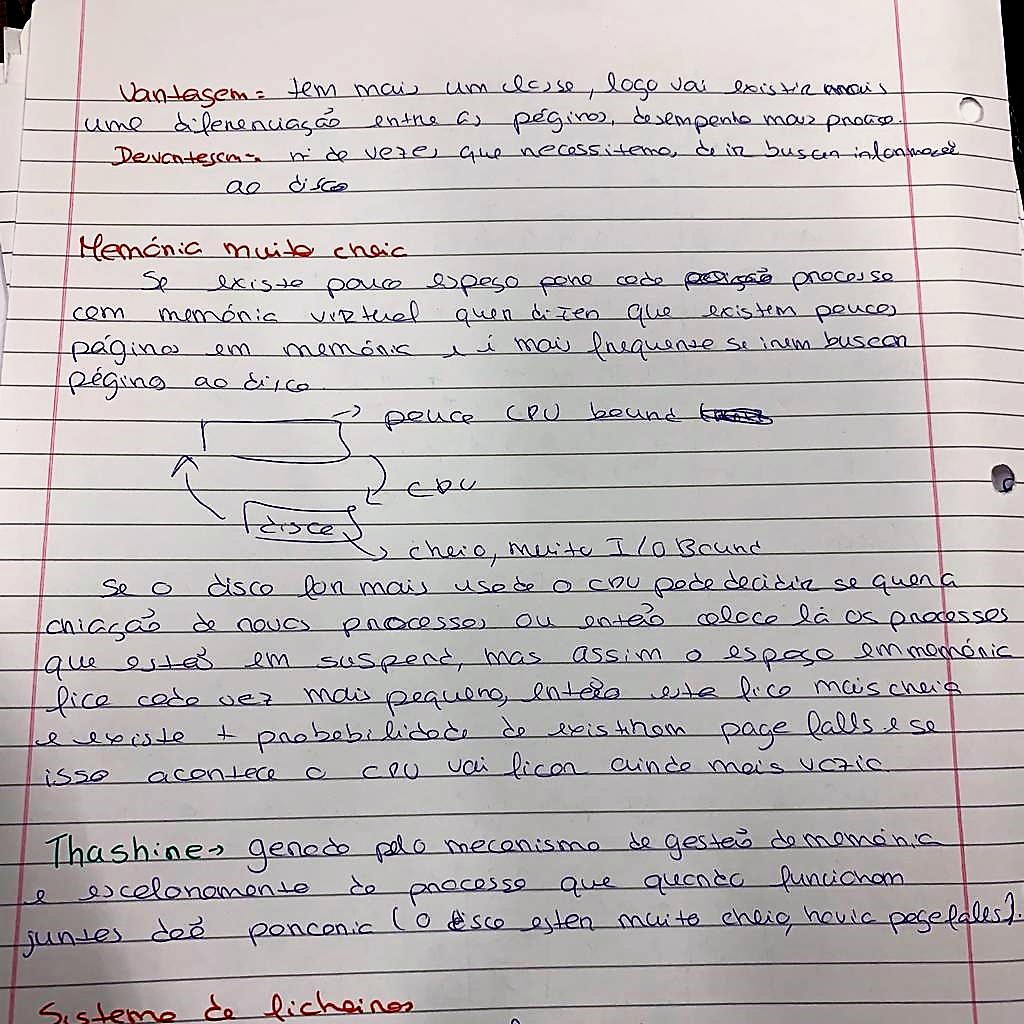 Vantagem = tem mais um classe, logo vai existir mais
uma diferenciação entre as páginas, desempenho mais
Desvantagem = nº de vezes que necessitamos de ir buscar informações
ao disco
Memória muito cheia
Se existe pouco espaço para cada processo
com memória virtual quer dizer que existem poucas
páginas em memória e é mais frequente se irem buscar
página ao disco.
→ pouco CPU bound
CPU
disco
→ cheio, muito I/O Bound
Se o disco for mais usado o CPU pode decidir se quer a
criação de novos processos ou então coloca lá os processos
que estão em suspend, mas assim o espaço em memória
fica cada vez mais pequeno, então esta fica mais cheia
e existe + probabilidade de existirem page falls e se
isso acontece o CPU vai ficar ainda mais vazio
Thashine → gerado pelo mecanismo de gestão de memória
e escalonamento do processo que quando funcionam
juntos dão porcaria (O disco estar muito cheio, havia page fales).
Sistema de ficheiros